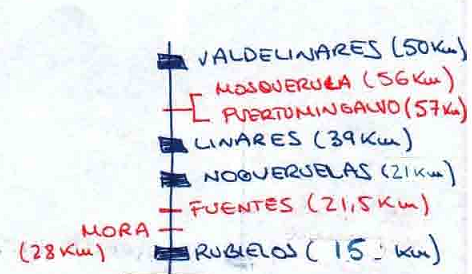 VALDELINARES (50Km)
MOSQUERUELA (56Km)
PUERTOMINGALVO (57Km)
LINARES (39Km)
NOGUERUELAS (21Km)
FUENTES (21,5Km)
MORA
(28Km)
RUBIELOS (15 Km)